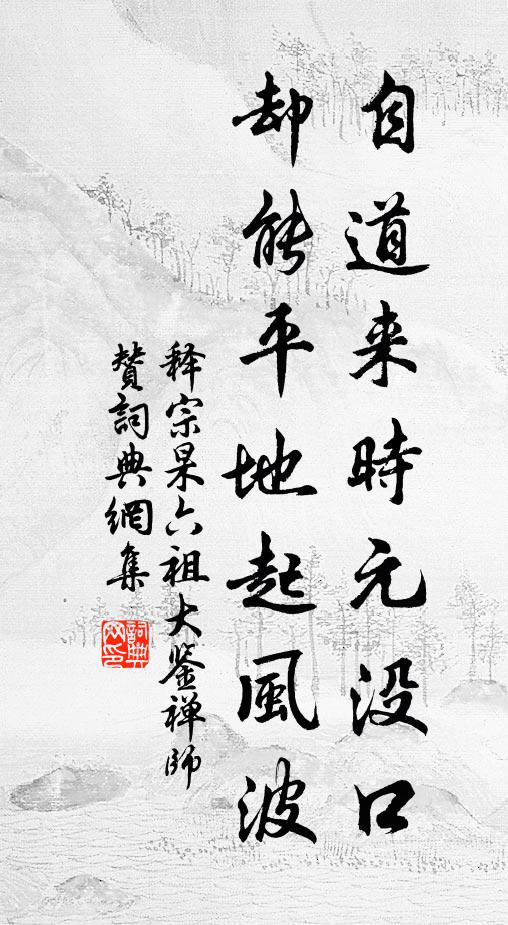 自道来時元没口
却能平地起風波
释宗杲六祖大鉴禅師
赞詞典網集
詞典
网印